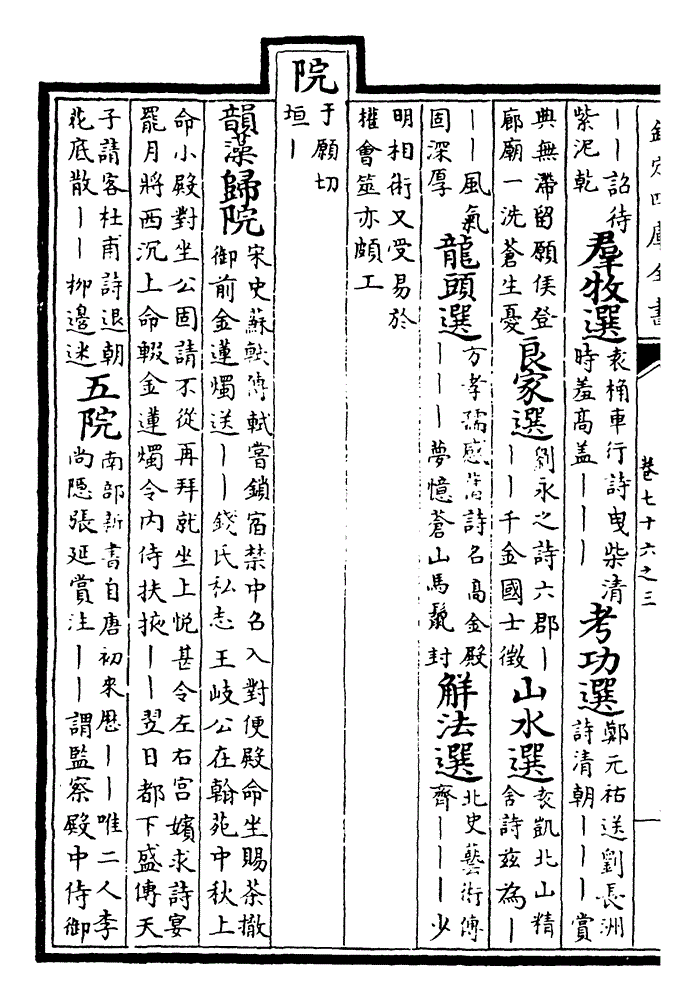 欽定四庫全書
卷七十六之三
丨丨詔待
紫泥乾
羣牧選
袁桷車行詩曳柴清
時羞高盖丨丨丨
考功選
鄭元祐送劉長洲
詩清朝丨丨丨賞
典無滯留願俟登
廊廟一洗蒼生憂
良家選
劉永之詩六郡丨
丨丨千金國士徵
山水選
袁凱北山精
舍詩兹為丨
丨丨風氣
固深厚
龍頭選
方孝孺感舊詩名高金殿
丨丨丨夢憶蒼山馬鬛封
解法選
北史藝術傳
齊丨丨丨少
明相術又受易於
權會筮亦頗工
院
于願切
垣丨
韻藻歸院
宋史蘇軾傳軾嘗鎖宿禁中召入對便殿命坐賜茶撤
御前金蓮燭送丨丨錢氏私志王岐公在翰苑中秋上
命小殿對坐公固請不從再拜就坐上悅甚令左右宮嬪求詩宴
罷月將西沉上命輟金蓮燭令內侍扶掖丨丨翌日都下盛傳天
子請客杜甫詩退朝
花底散丨丨柳邊迷
五院
南部新書自唐初來歷丨丨唯二人李
尚隠張延賞注丨丨謂監察殿中侍御